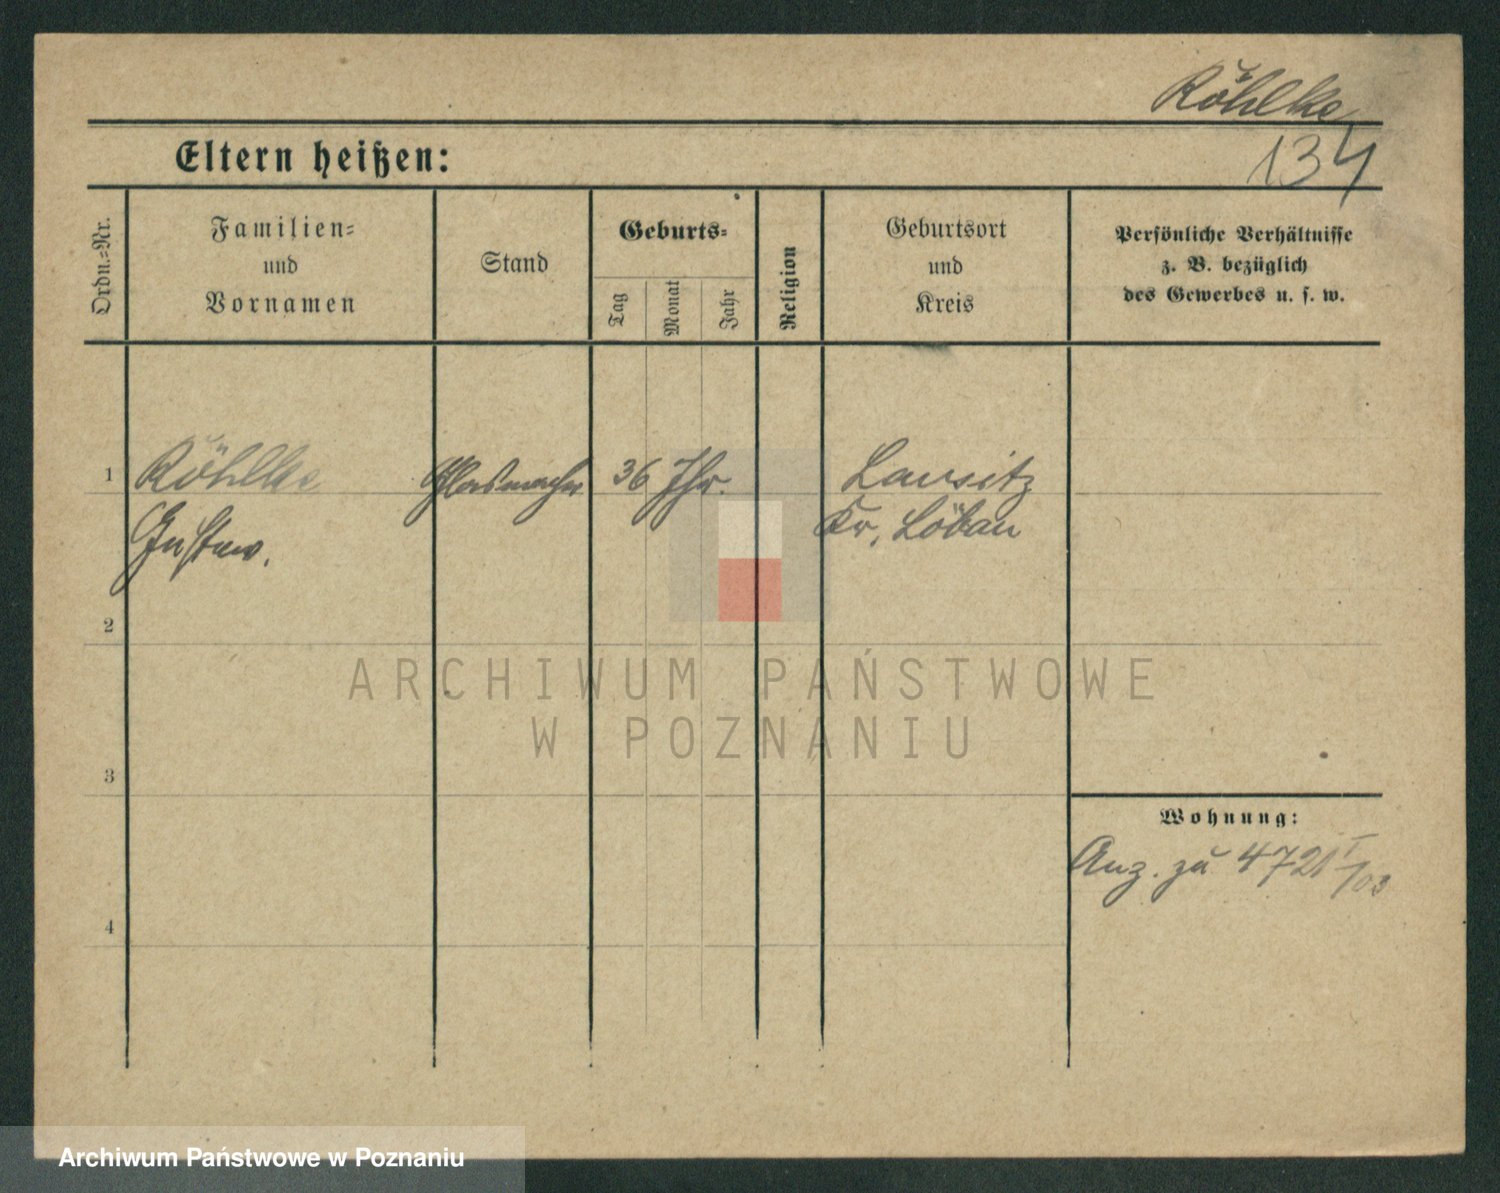 Röhlke
134
Eltern heißen:
Ordn.=Nr.
Familien=
und
Vornamen
Stand
Geburts=
Tag
Monat
Jahr
Religion
Geburtsort
und
Kreis
Persönliche Verhältnisse
z. B. bezüglich
des Gewerbes u. s. w.
1
Röhlke
Gustav.
Glasmacher
36 Jhr.
Lausitz
Kr. Löbau
2
3
4
Wohnung:
Anz. zu 4721 I/03
ARCHIWUM PAŃSTWOWE
W POZNANIU
Archiwum Państwowe w Poznaniu